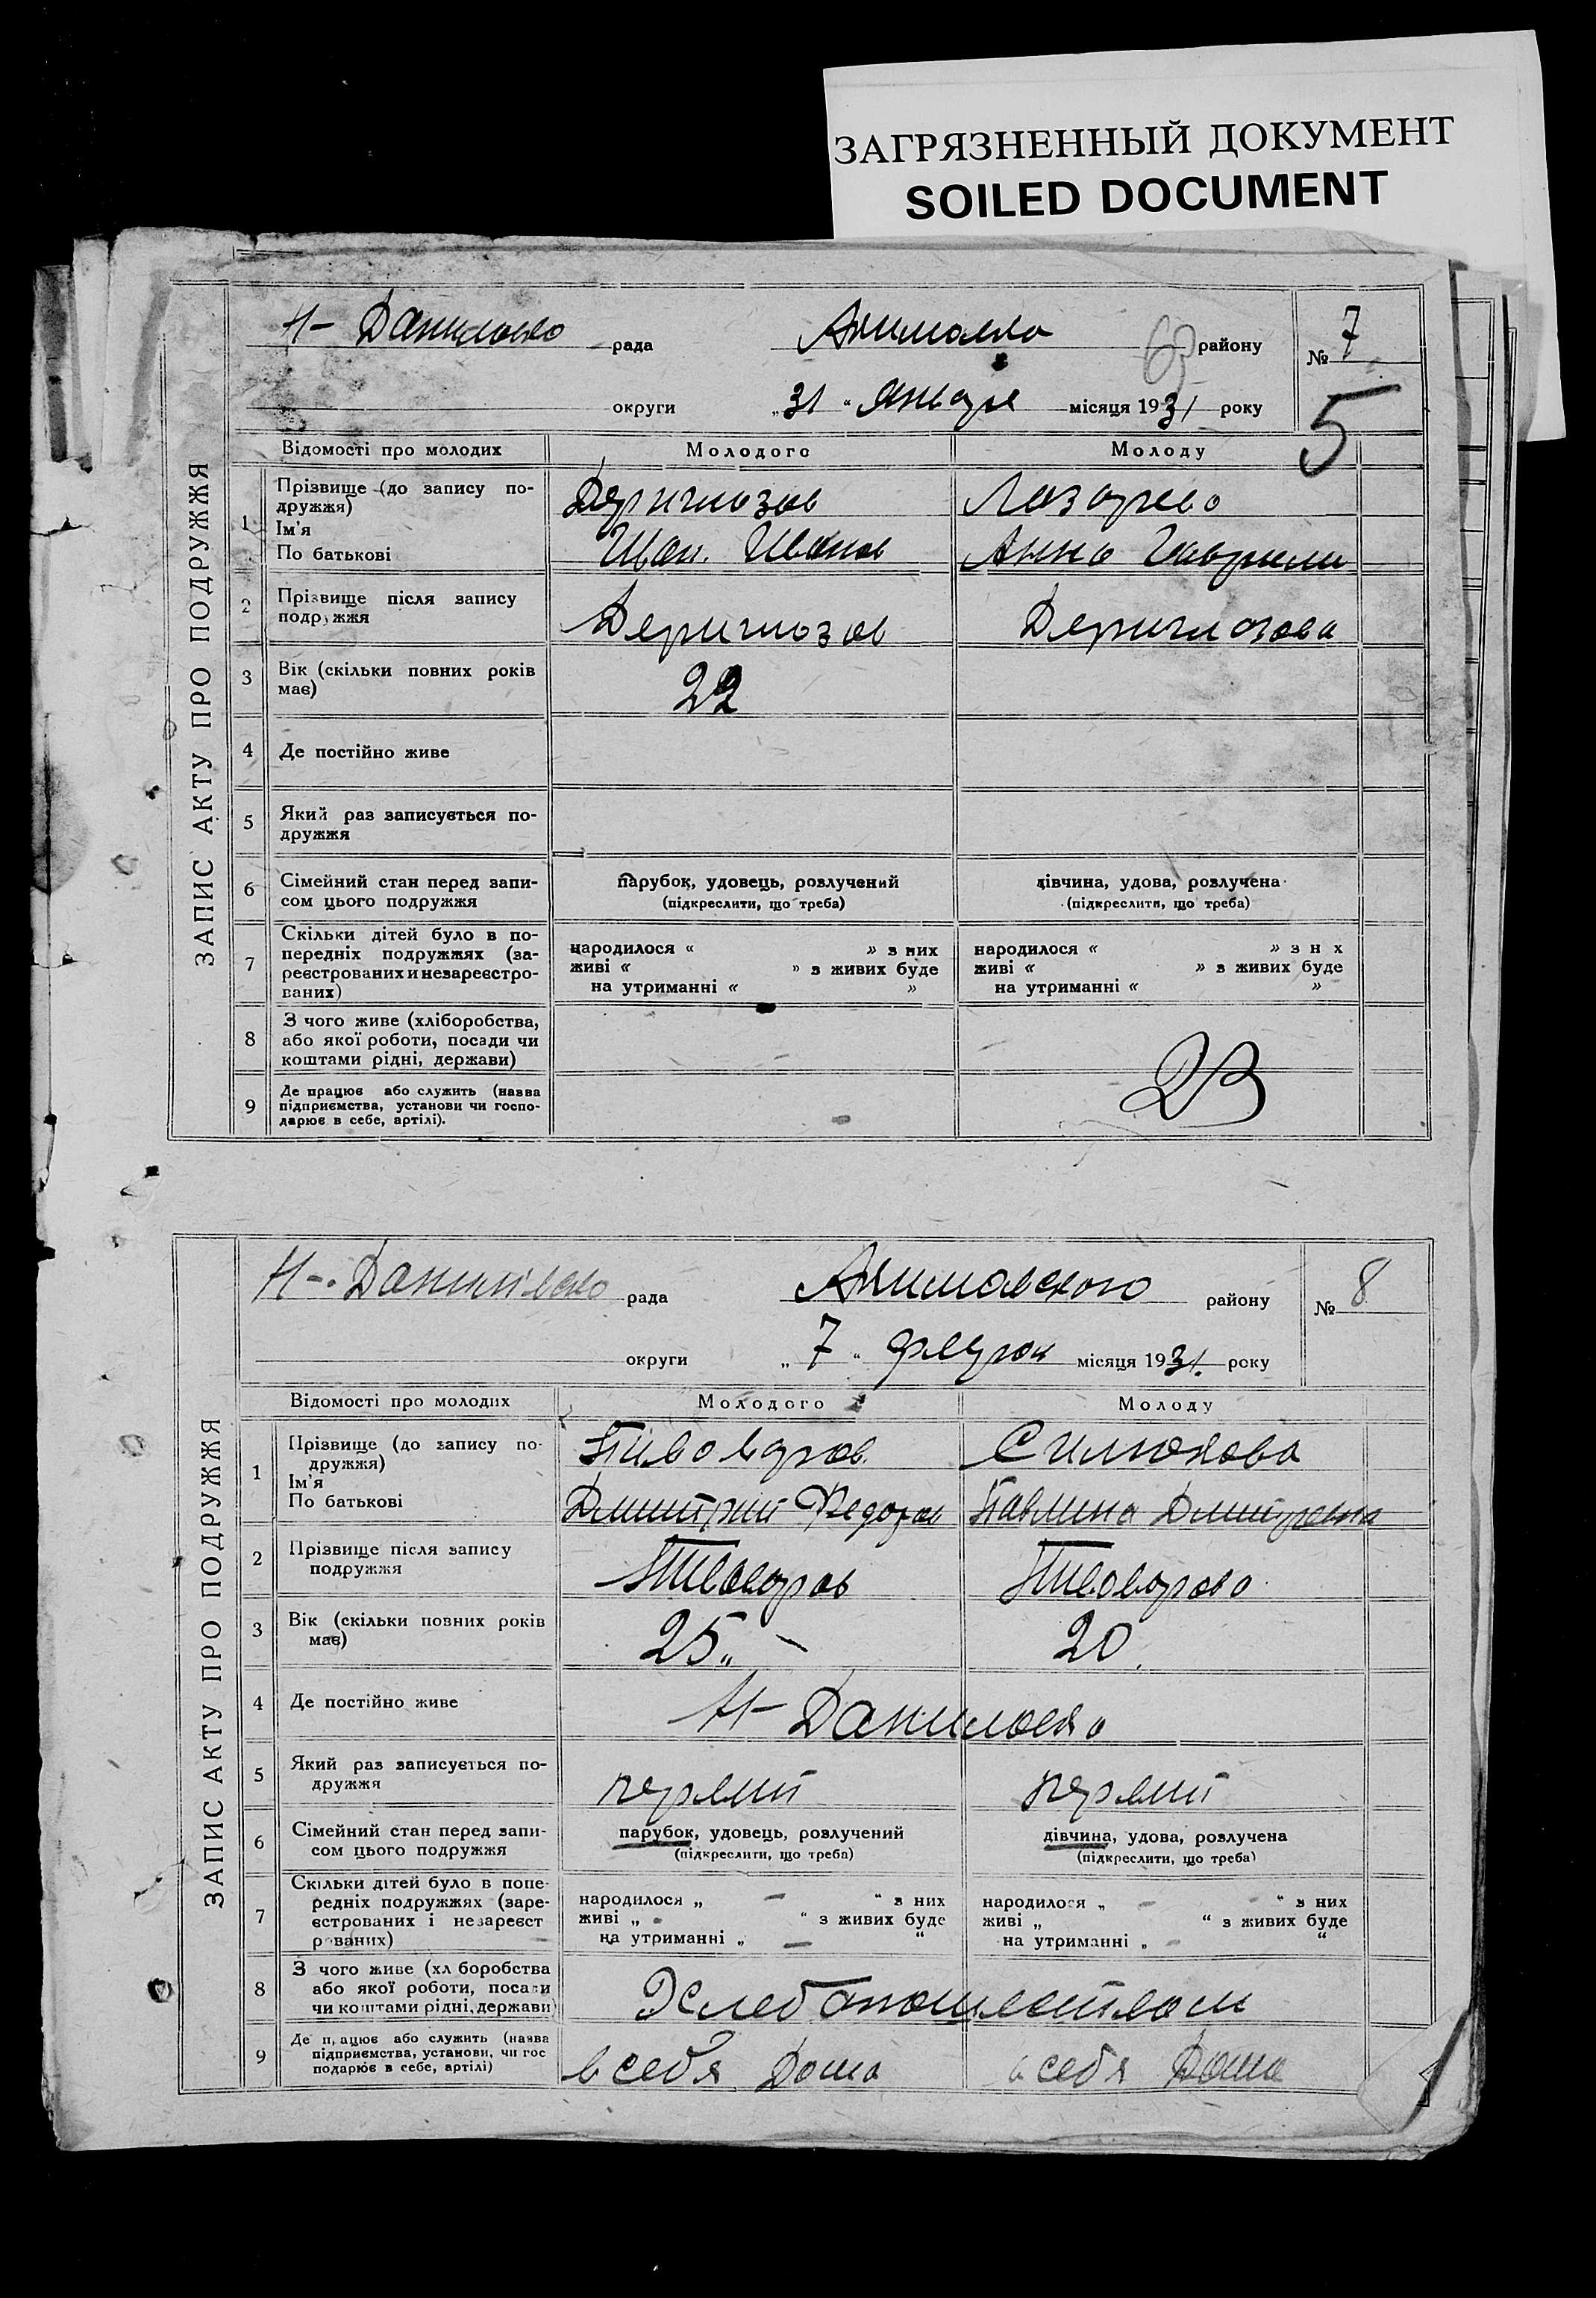 ЗАГРЯЗНЕННЫЙ ДОКУМЕНТ
SOILED DOCUMENT
ЗАПИС АКТУ ПРО ПОДРУЖЖЯ
Н-Даниловка рада района № 7
63
округи „31“ Января місяця 1931 року
5
Відомості про молодих Молодого Молоду
1 Прізвище (до запису по-
дружжя)
Ім'я
По батькові
Дериглазов Лазарева
Иван. Иванов Анна Гаврили
2 Прізвище після запису
подружжя
Дериглазов Дериглазова
3 Вік (скільки повних років
має)
22
4 Де постійно живе
5 Який раз записується по-
дружжя
6 Сімейний стан перед запи-
сом цього подружжя
парубок, удовець, розлучений дівчина, удова, розлучена
(підкреслити, що треба) (підкреслити, що треба)
7 Скільки дітей було в по-
передніх подружжях (за-
реєстрованих и незареєстро-
ваних)
народилося « » з них народилося « » з н х
живі « » з живих буде живі « » з живих буде
на утриманні « » на утриманні « »
8 З чого живе (хліборобства,
або якої роботи, посади чи
коштами рідні, держави)
9 Де працює або служить (назва
підприємства, установи чи госпо-
дарює в себе, артілі).
ЗАПИС АКТУ ПРО ПОДРУЖЖЯ
Н-Данилівка рада Акимовского району № 8
округи „7“ місяця 1931. року
Відомості про молодих Молодого Молоду
1 Прізвище (до запису по-
дружжя)
Ім'я
По батькові
Пивоваров Силюкова
Дмитрий Федоров Павлина Дмитровна
2 Прізвище після запису
подружжя
Пивоваров Пивоварова
3 Вік (скільки повних років
має)
25 20
4 Де постійно живе
Н-Даниловка
5 Який раз записується по-
дружжя
первий первий
6 Сімейний стан перед запи-
сом цього подружжя
парубок, удовець, розлучений дівчина, удова, розлучена
(підкреслити, що треба) (підкреслити, що треба)
7 Скільки дітей було в попе-
редніх подружжях (заре-
єстрованих і незареєст
рованих)
народилося „ — “ з них народилося „ — “ з них
живі „ - “ з живих буде живі „ “ з живих буде
на утриманні „ — “ на утриманні „ - “
8 З чого живе (хл боробства
або якої роботи, посади
чи коштами рідні, держави)
Хлебопашеством
9 Де п, ацює або служить (назва
підприємства, установи, чи гос
подарює в себе, артілі)
в себя Дома в себя Дома